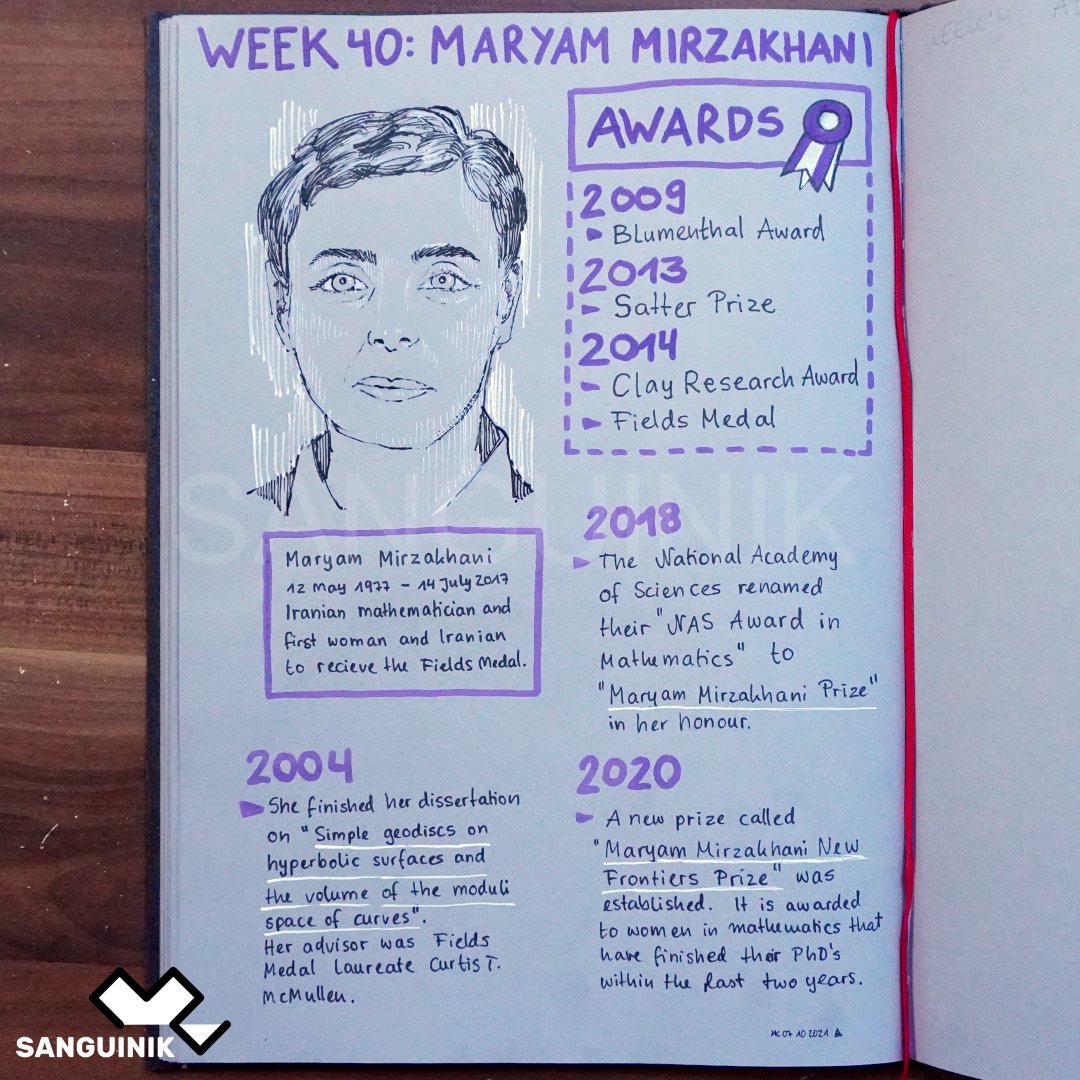 WEEK 40: MARYAM MIRZAKHANI
AWARDS
2009
Blumenthal Award
2013
Satter Prize
2014
Clay Research Award
Fields Medal
Maryam Mirzakhani
12 May 1977 – 14 July 2017
Iranian mathematician and
first woman and Iranian
to recieve the Fields Medal.
2018
The National Academy
of Sciences renamed
their "NAS Award in
Mathematics" to
"Maryam Mirzakhani Prize"
in her honour.
2004
She finished her dissertation
on "Simple geodiscs on
hyperbolic surfaces and
the volume of the moduli
space of curves".
Her advisor was Fields
Medal Laureate Curtis T.
McMullen.
2020
A new prize called
"Maryam Mirzakhani New
Frontiers Prize" was
established. It is awarded
to women in mathematics that
have finished their PhD's
within the last two years.
07 10 2021
SANGUINIK
SANGUINIK